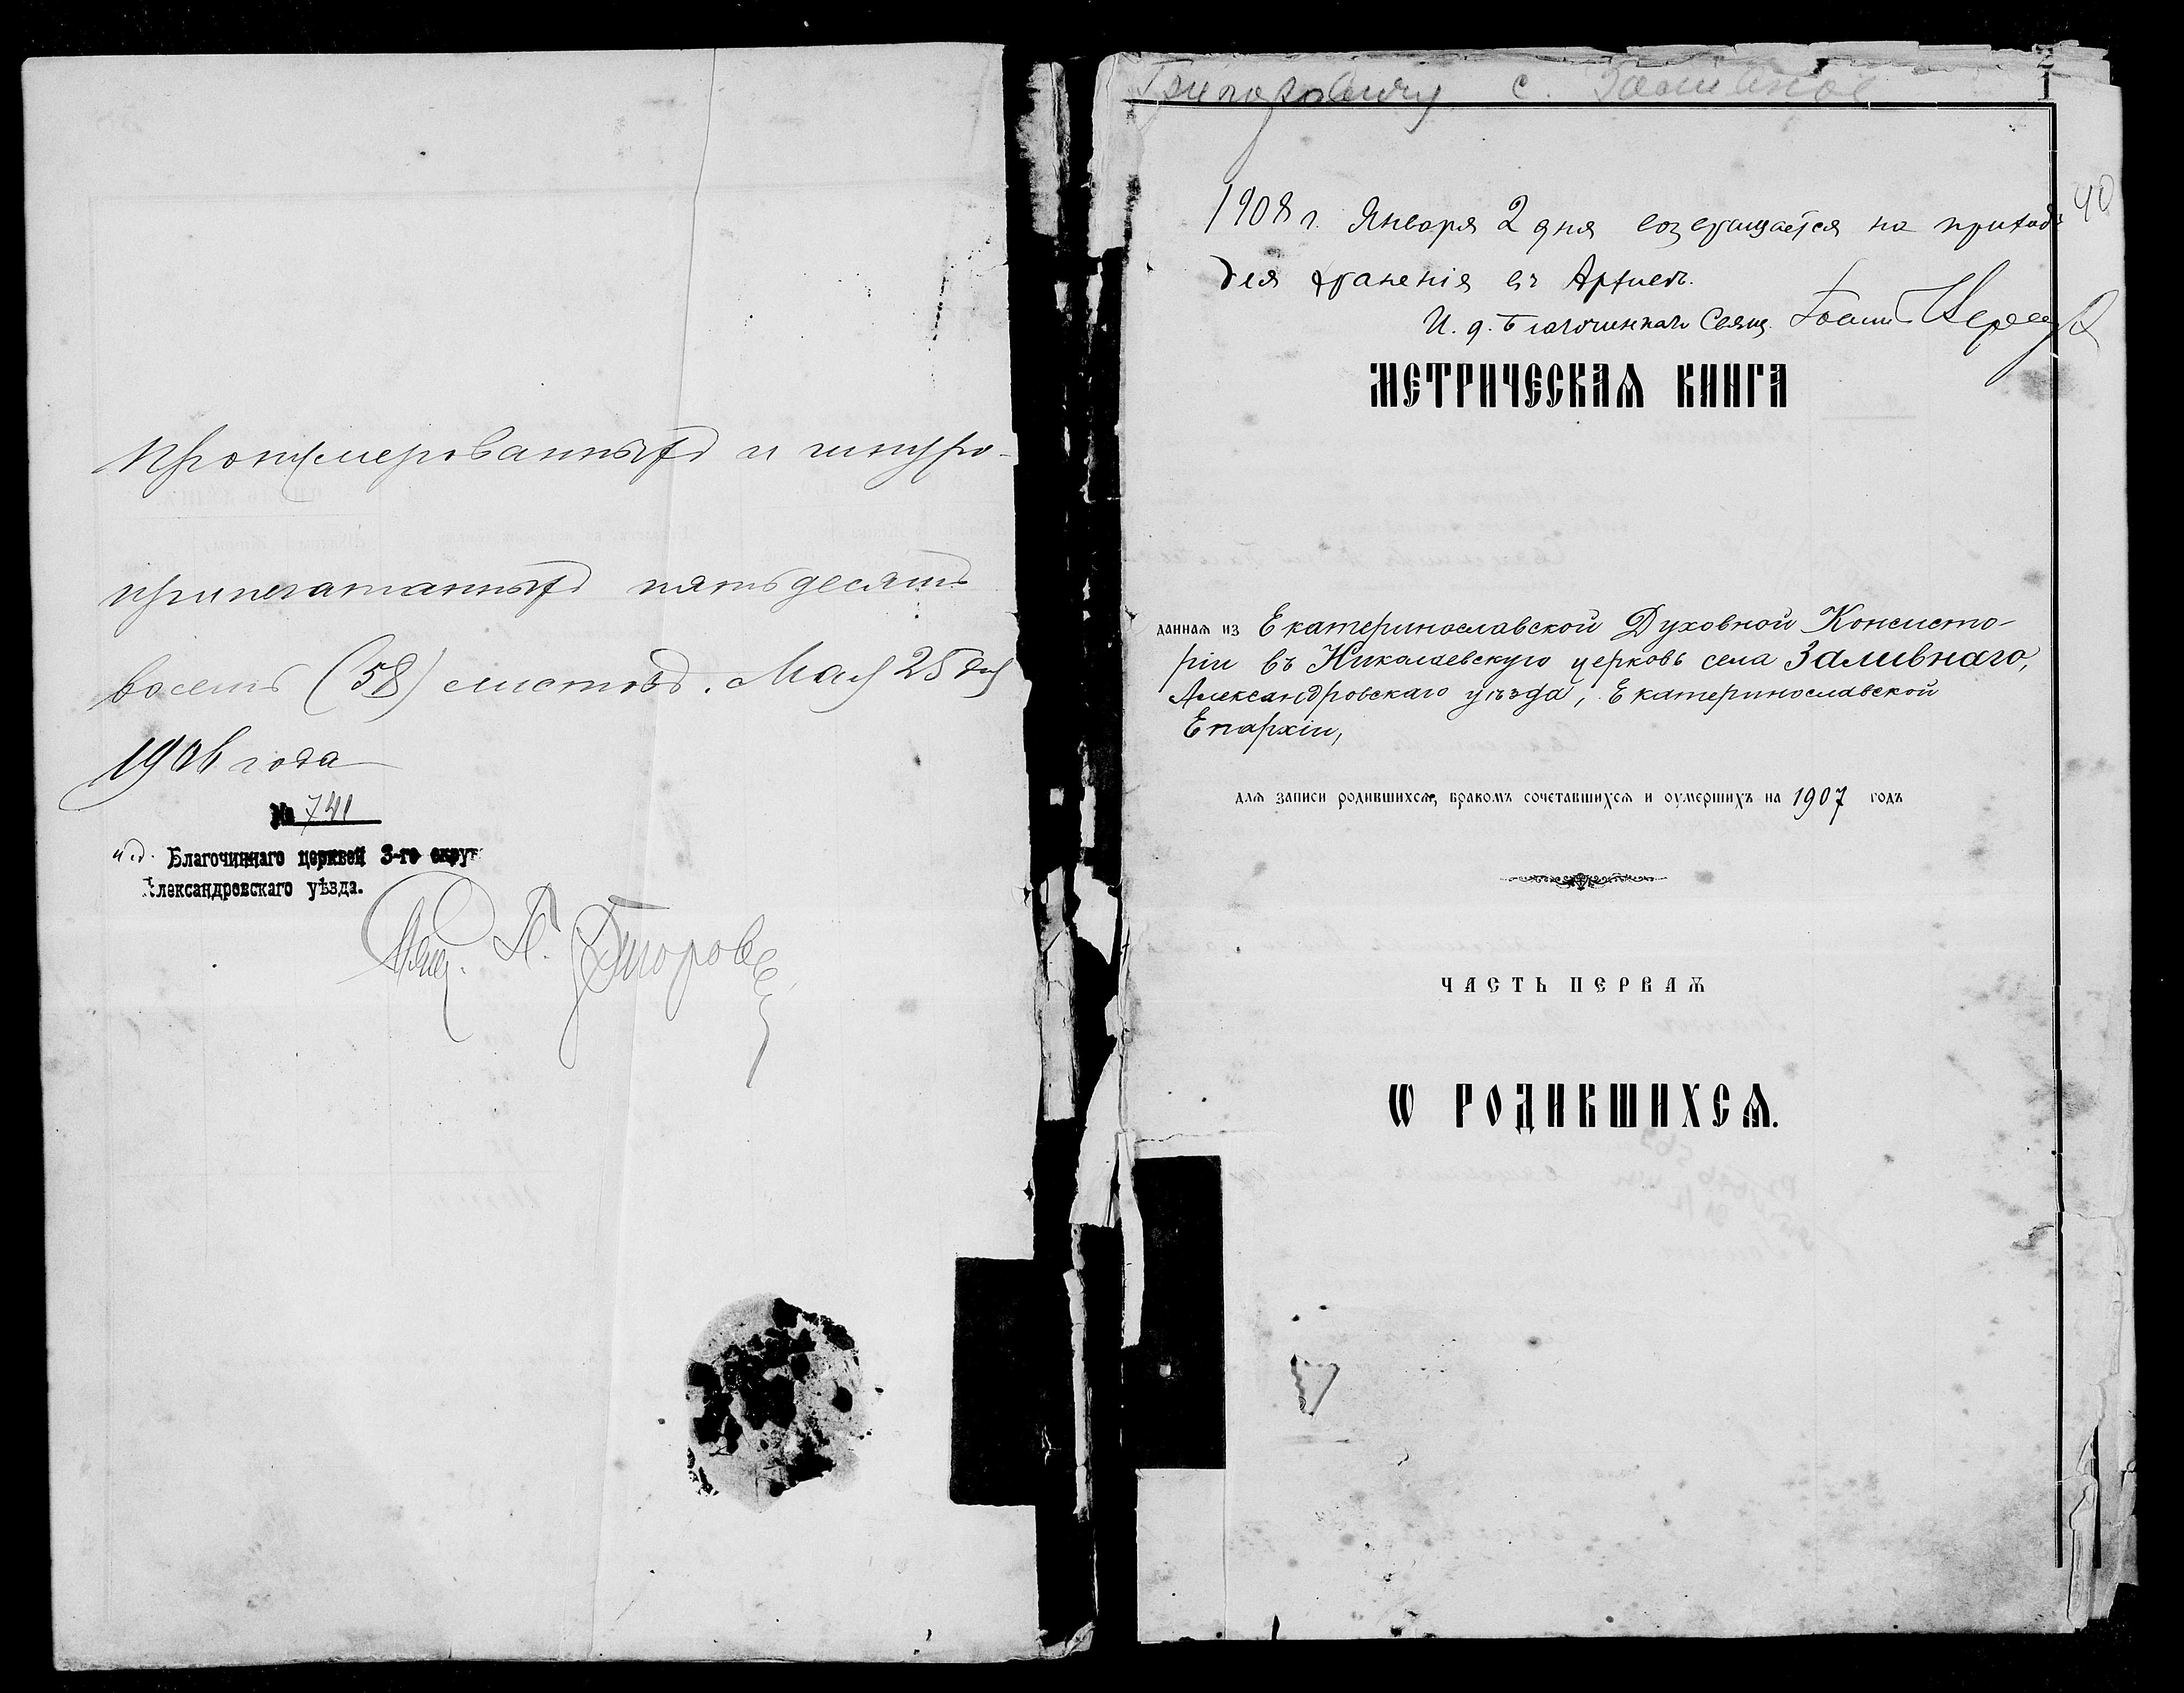 пронумерованныхъ и шнуро-
припечатанныхъ пятьдесятъ
восемь (58) листовъ. Мая 25 дня
1906 года
№ 741
и.д. Благочиннаго церквей 3-го округ
Александровскаго уѣзда.
Свящ.
с.
40
1908 г. Января 2 дня возвращается на приходъ
для храненія въ Архивъ.
И. д. Благочиннаго Свящ. Іоаннъ
МЕТРИЧЕСКАѦ КНИГА
даннаѧ из Екатеринославской Духовной Консисто-
ріи въ Николаевскую церковь села Заливнаго,
Александровскаго уѣзда, Екатеринославской
Епархіи,
длѧ записи родившихсѧ, бракомъ сочетавшихсѧ и оумершихъ на 1907 годъ
ЧАСТЬ ПЕРВАѦ
Ѡ РОДИВШИХСѦ.